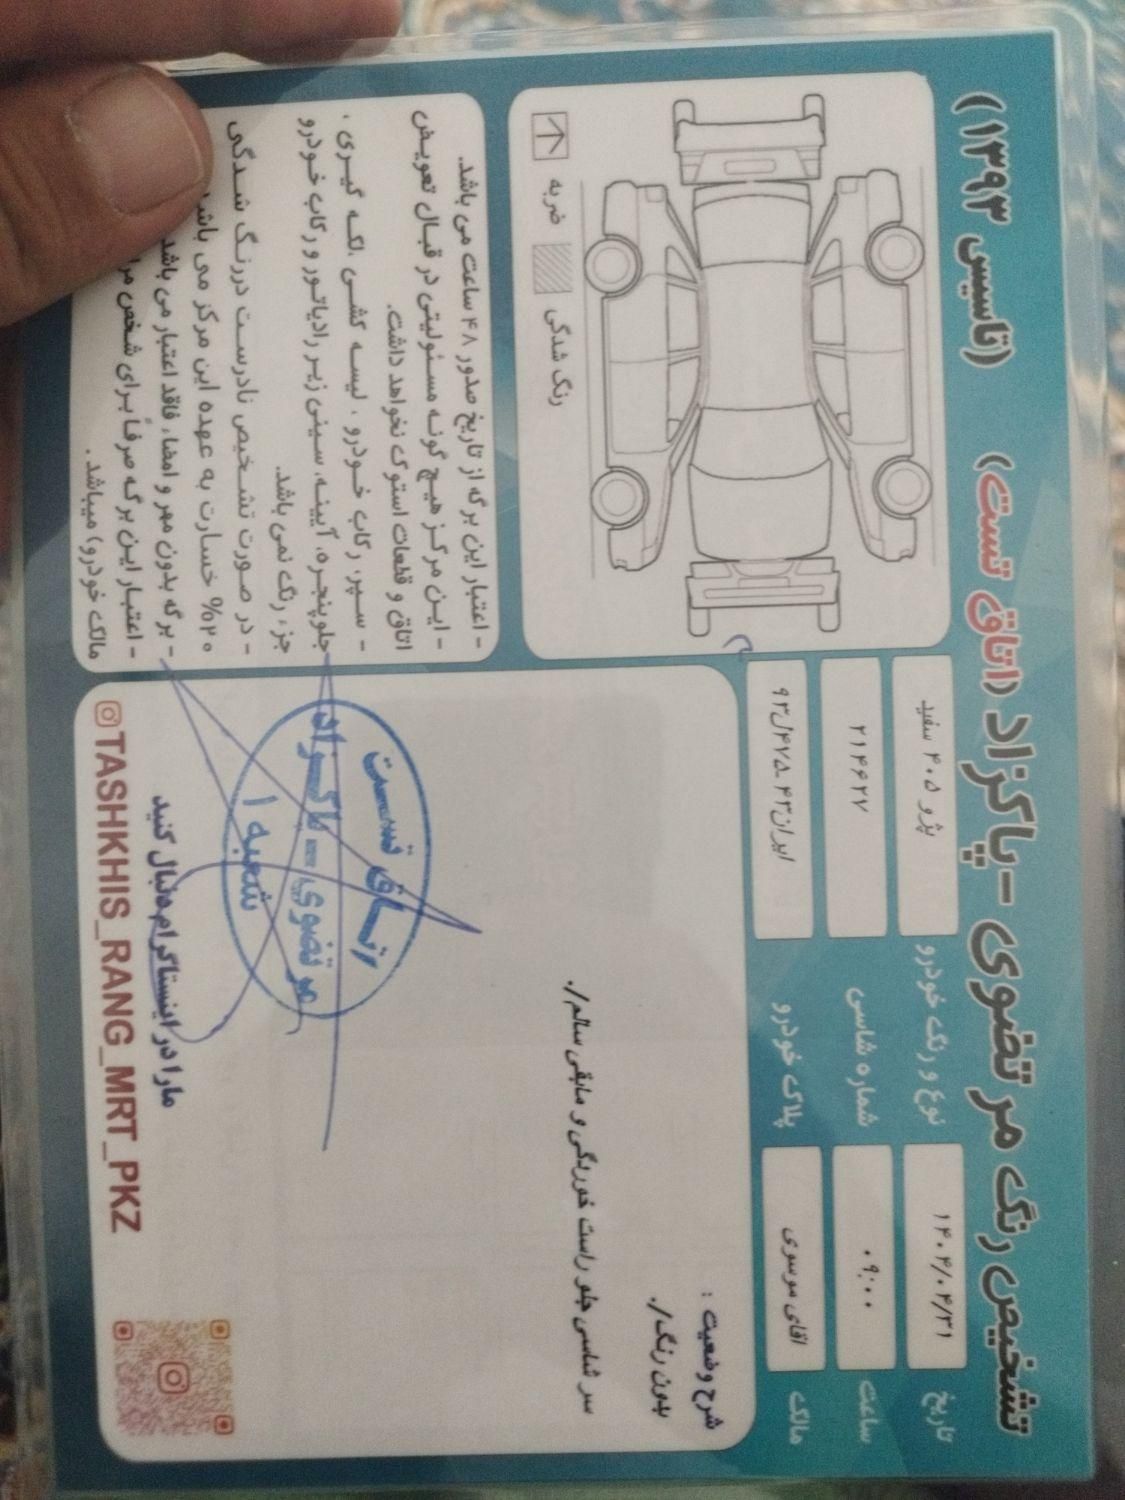 تشخیص رنگ مرتضوی - پاکزاد (اتاق تست) (تاسیس ۱۳۹۳)
تاریخ
۱۴۰۴/۰۴/۳۱
نوع و رنگ خودرو
پژو ۴۰۵ سفید
ساعت
۰۹:۰۰
شماره شاسی
۲۱۴۶۲۷
مالک
اقای موسوی
پلاک خودرو
ضربه
رنگ شدگی
شرح وضعیت :
بدون رنگ./
سر شاسی جلو راست خوردگی و مابقی سالم./
- اعتبار این برگه از تاریخ صدور ۴۸ ساعت می باشد.
- این مرکز هیچ گونه مسئولیتی در قبال تعویض
اتاق و قطعات استوک نخواهد داشت.
- سپر، رکاب خودرو ، لیسه کشی ،لکه گیری ،
جلوپنجره، آیینه، سینی زیر رادیاتور و رکاب خودرو
جزء رنگ نمی باشد.
- در صورت تشخیص نادرست در رنگ شدگی
۲۰% خسارت به عهده این مرکز می باشد
- برگه بدون مهر و امضاء فاقد اعتبار می باشد
- اعتبار این برگه صرفاً برای شخص
مالک خودرو) میباشد .
اتاق تست
مرتضوی - پاکزاد
شعبه ۱
ما را در اینستاگرام دنبال کنید
TASHKHIS_RANG_MRT_PKZ